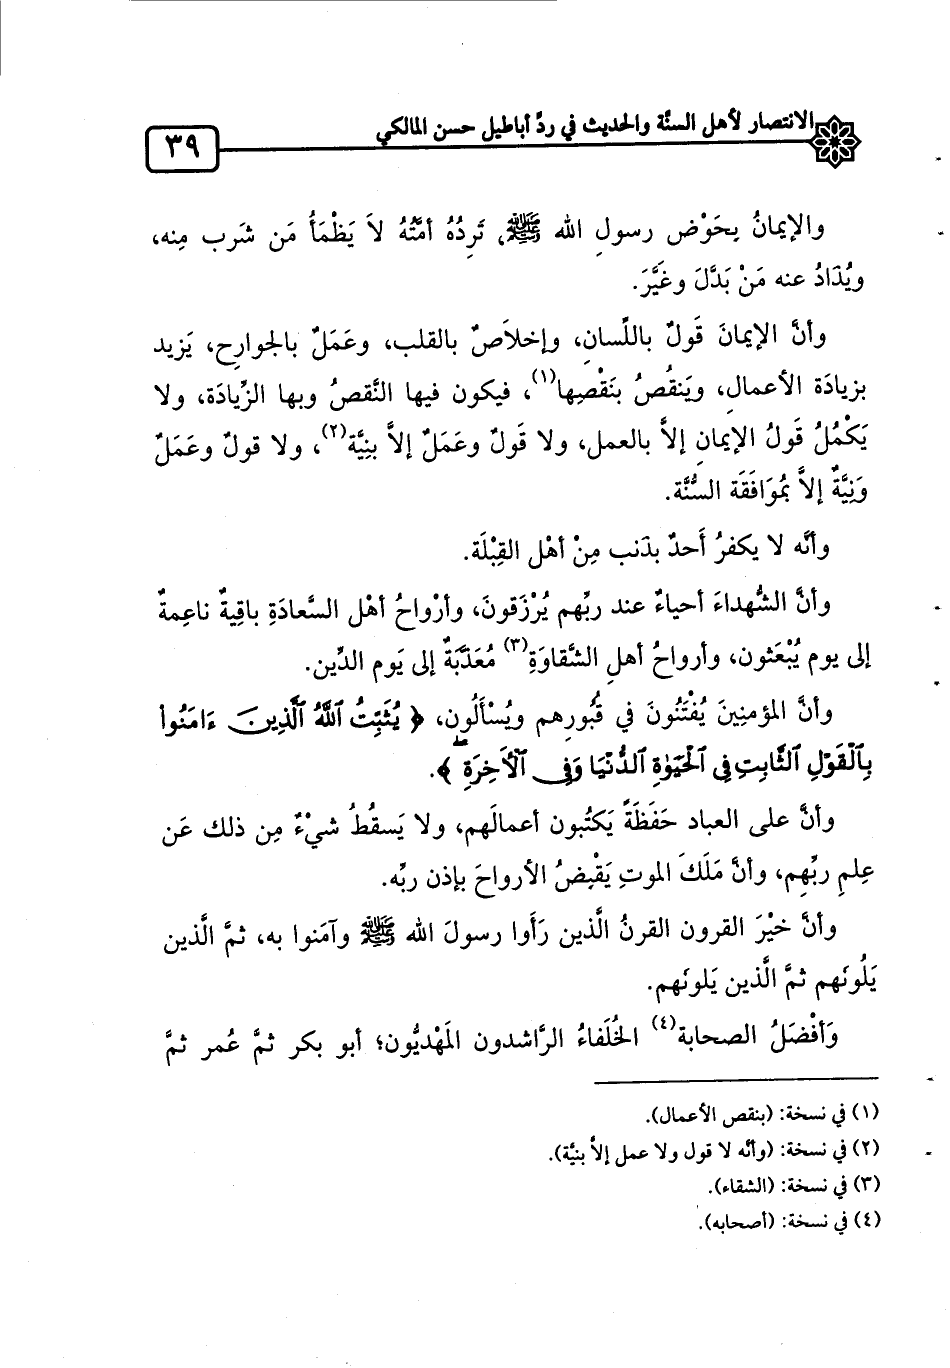 الانتصار لأهل السنَّة والحديث في ردِّ أباطيل حسن المالكي
٣٩
والإيمانُ بِحَوْض رسولِ الله ﷺ، تَرِدُهُ أمَّتُهُ لاَ يَظْمَأُ مَن شَرب مِنه،
ويُذَادُ عنه مَنْ بَدَّلَ وغَيَّرَ.
وأنَّ الإيمانَ قَولٌ باللِّسانِ، وإخلاَصٌ بالقلب، وعَمَلٌ بالجوارِح، يَزيد
بزيادَة الأعمالِ، ويَنقُصُ بنَقْصِها(١)، فيكون فيها النَّقصُ وبها الزِّيادَة، ولا
يَكْمُلُ قَولُ الإيمانِ إلاَّ بالعمل، ولا قَولٌ وعَمَلٌ إلاَّ بنِيَّة(٢)، ولا قولٌ وعَمَلٌ
وَنِيَّةٌ إلاَّ بمُوَافَقَة السُّنَّة.
وأنَّه لا يكفرُ أَحدٌ بذَنب مِنْ أهْل القِبْلَة.
وأنَّ الشُّهداءَ أحياءٌ عند ربِّهم يُرْزَقونَ، وأرْواحُ أهْل السَّعادَةِ باقِيةٌ ناعِمةٌ
إلى يوم يُبْعَثون، وأرواحُ أهلِ الشَّقاوَةِ(٣) مُعَذَّبَةٌ إلى يَوم الدِّين.
وأنَّ المؤمنِينَ يُفْتَنُونَ في قُبُورِهم ويُسْأَلُون، ﴿ يُثَبِّتُ ٱللَّهُ ٱلَّذِينَ ءَامَنُواْ
بِٱلْقَوْلِ ٱلثَّابِتِ فِي ٱلْحَيَوٰةِ ٱلدُّنْيَا وَفِي ٱلْأَخِرَةِ ﴾.
وأنَّ على العباد حَفَظَةً يَكتُبون أعمالَهم، ولا يَسقُطُ شيْءٌ مِن ذلك عَن
عِلمِ ربِّهِم، وأنَّ مَلَكَ الموتِ يَقْبِضُ الأرواحَ بإذن ربِّه.
وأنَّ خيْرَ القرون القرنُ الَّذين رَأَوا رسولَ الله ﷺ وآمَنوا به، ثمَّ الَّذين
يَلُونَهم ثمَّ الَّذين يَلونَهم.
وَأفْضَلُ الصحابة(٤) الخُلَفاءُ الرَّاشدون المَهْديُّون؛ أبو بكر ثمَّ عُمر ثمَّ
(١) في نسخة: (بنقص الأعمال).
(٢) في نسخة: (وأنَّه لا قول ولا عمل إلاَّ بنيَّة).
(٣) في نسخة: (الشقاء).
(٤) في نسخة: (أصحابه).